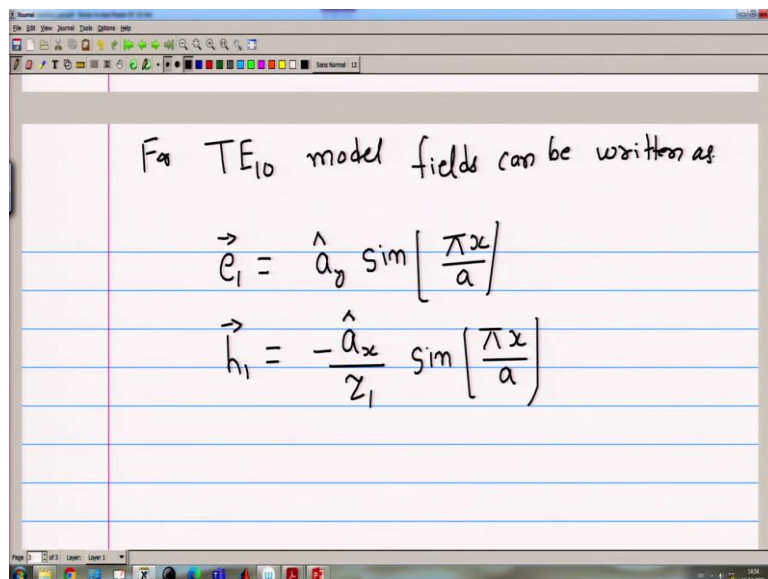 Journal
File Edit View Journal Tools Options Help
Sans Normal 12
For TE₁₀ model fields can be written as
e⃗₁ = â_y sin[πx/a]
h⃗₁ = -â_x/Z₁ sin[πx/a]
Page 3 of 3 Layer: Layer 1
16:56